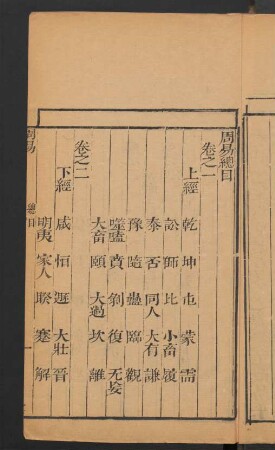 周易總目
卷之一
上經
乾 坤 屯 蒙 需
訟 師 比 小畜 履
泰 否 同人 大有 謙
豫 隨 蠱 臨 觀
噬嗑 賁 剝 復 无妄
大畜 頤 大過 坎 離
卷之二
下經
咸 恒 遯 大壯 晉
明夷 家人 睽 蹇 解
周易
總目
一